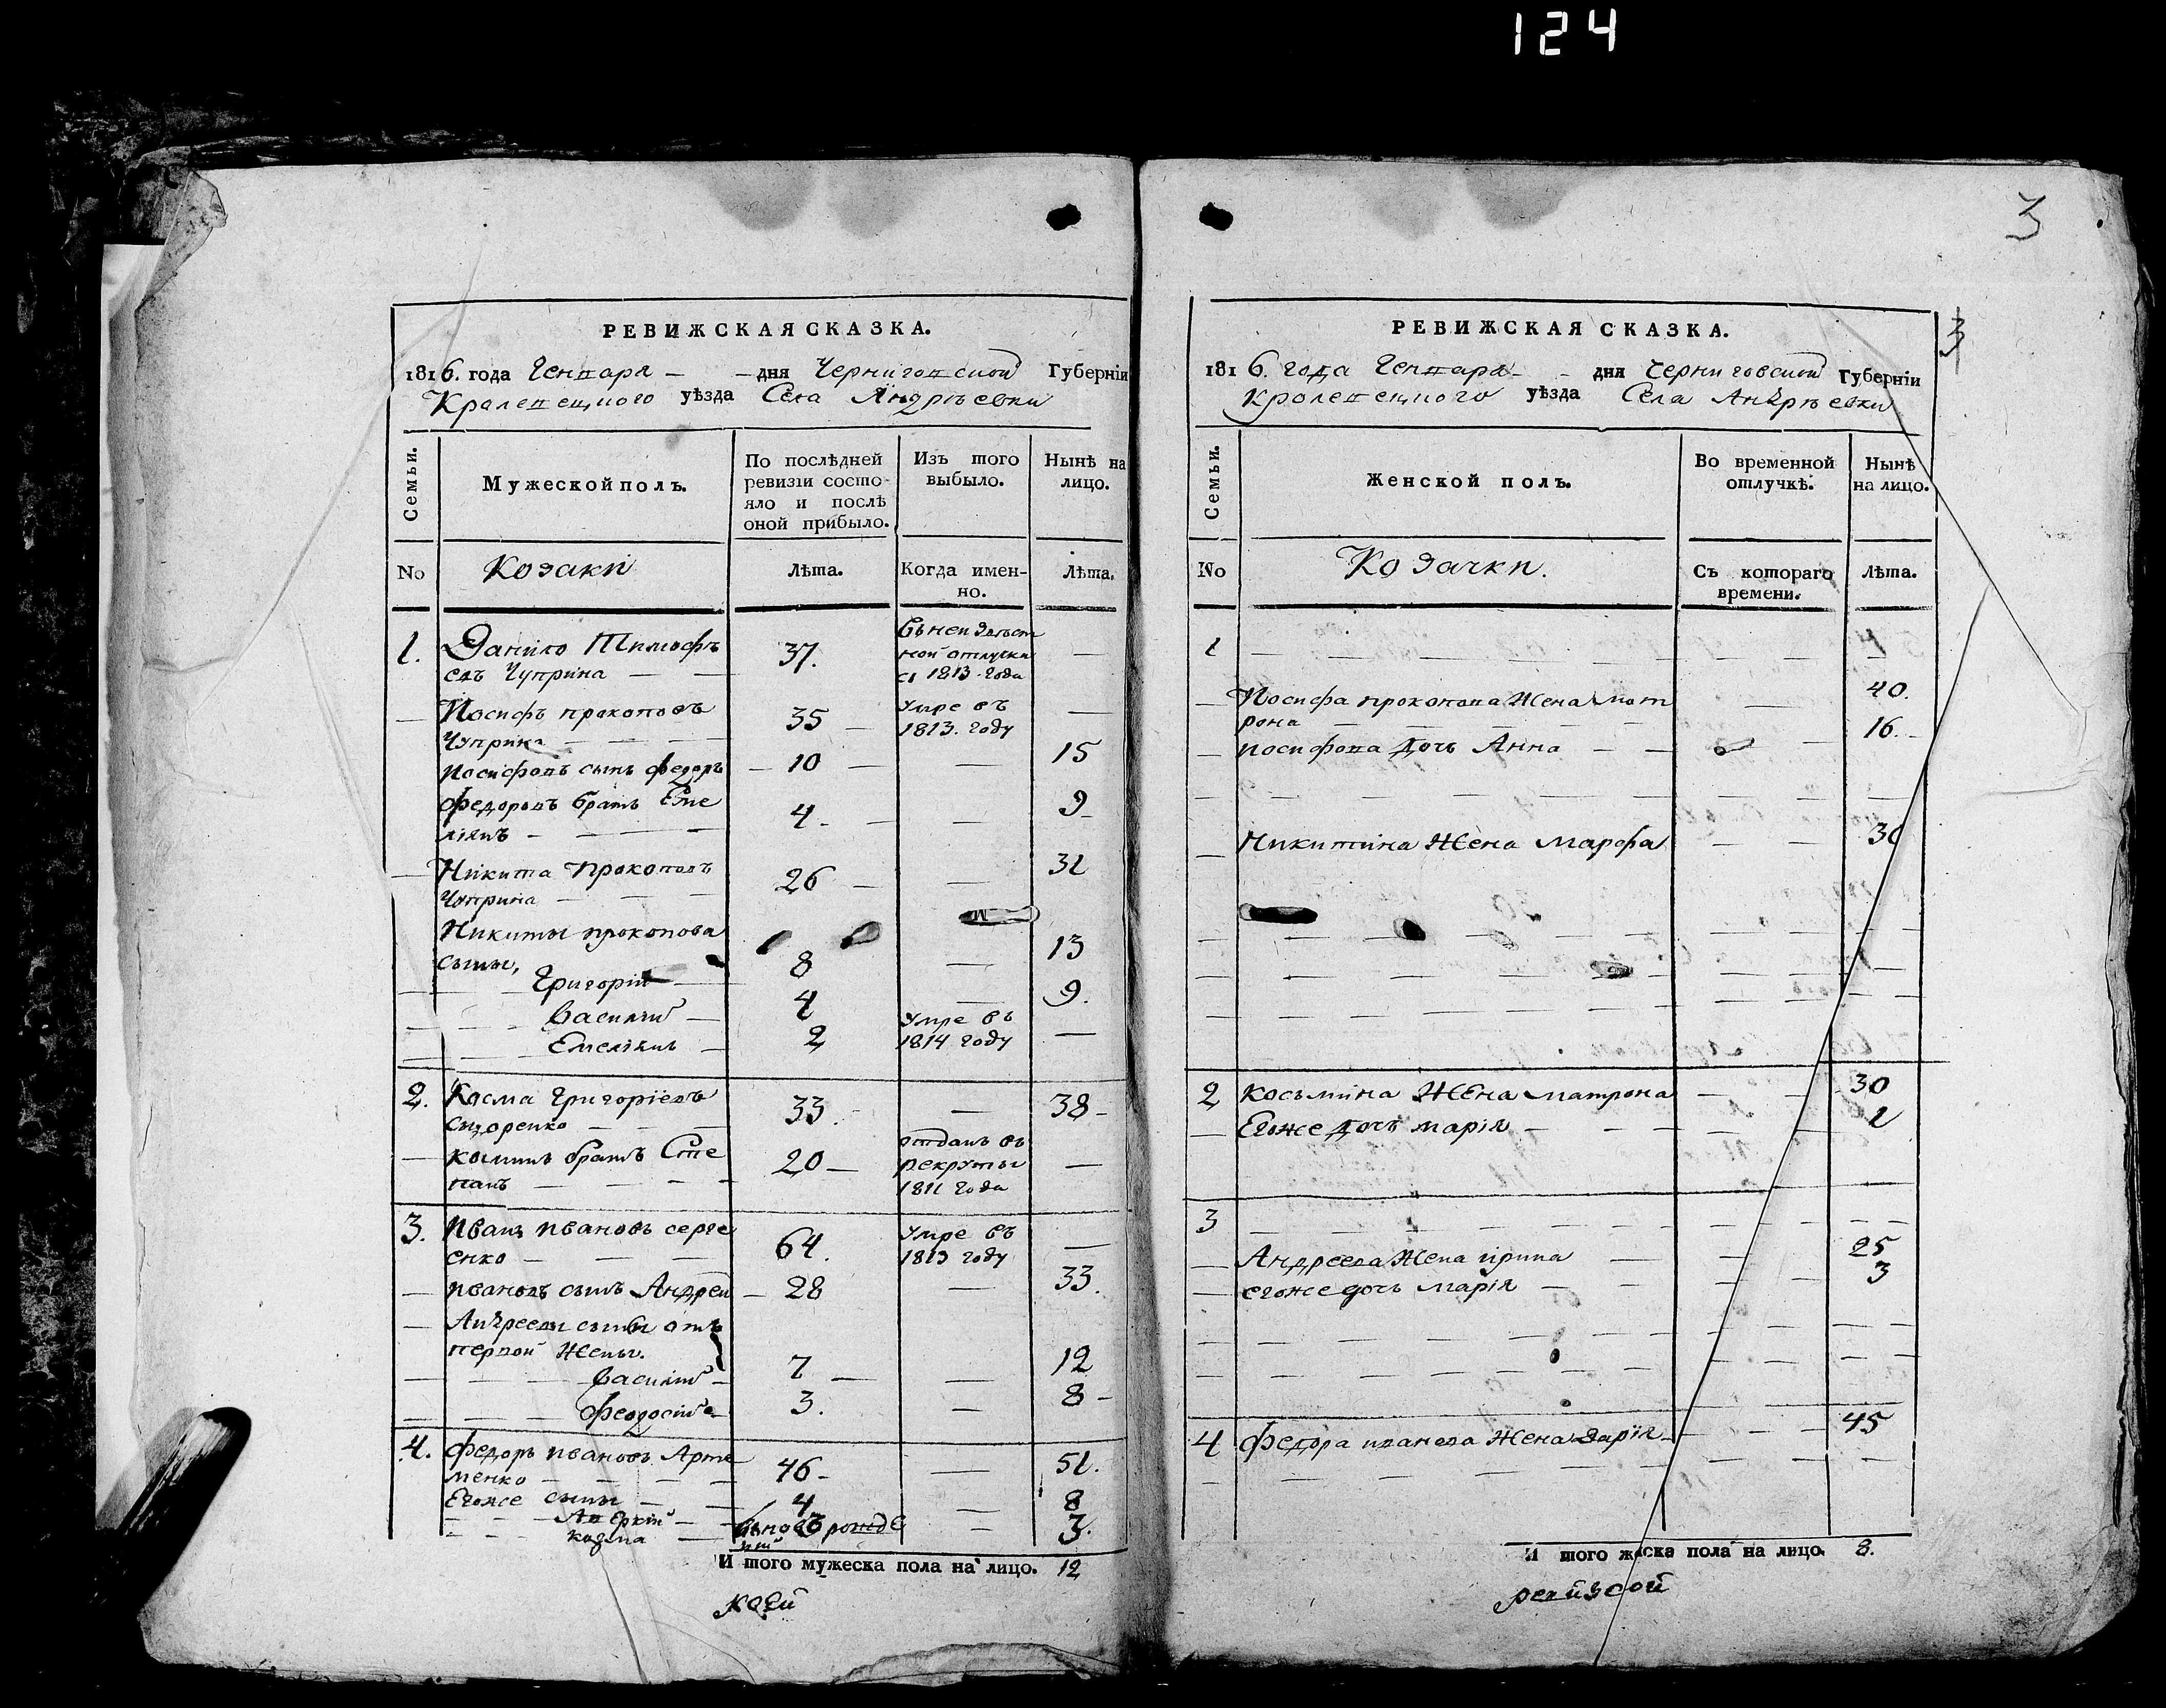 124
3
РЕВИЖСКАЯ СКАЗКА.
1816. года Генваря – – дня Черниговской Губерніи
Кролевецкого уѣзда Села Андрѣевки
Семьи.
Мужеской полъ.
По послѣдней ревизіи состо-
яло и послѣ
оной прибыло.
Изъ того
выбыло.
Нынѣ на
лицо.
No
Козаки
лѣта.
Когда имен-
но.
лѣта.
1. Данило Тимофѣ
евъ Чуприна — —
37.
Въ неизвѣст
ной отлучки
съ 1813 года
—
— Иосифъ прокоповъ
Чуприна
35
Умре въ
1813. году
—
Иосифовъ сынъ федоръ — 10 — — 15
Федоровъ братъ Еме
ліянъ —
4 — 9
— Никита Прокоповъ
Чуприна
26 — — 31
Никиты прокопова
сыны,
Григорій 8 — 13
Василий 4 — 9.
Емеліянъ 2
Умре въ
1814 году
—
2. Косма Григоріевъ
Сидоренко
33. — 38
— космин братъ Сте
панъ
20
отданъ въ
рекруты
1811 года
—
3. Иванъ Ивановъ серге
енко
64.
Умре въ
1813 году
—
— Ивановъ сынъ Андрей — 28 — 33.
— Андреевы сыны отъ
первой жены.
Василий 7 — — 12
Феодосий 3. — 8
4. Федоръ Ивановъ Арте
менко
46 — 51.
Егоже сыны
4 — 8
козма
вновь рожде
3.
И того мужеска пола на лицо. 12
3
РЕВИЖСКАЯ СКАЗКА.
1816. года Генваря – – дня Черниговской Губерніи
Кролевецкого уѣзда Села Андрѣевки
Семьи.
Женской полъ.
Во временной
отлучкѣ.
Нынѣ
на лицо.
No
Козачки.
Съ котораго
времени.
лѣта.
1
— Иосифа прокопова Жена мот
рона
40.
— Иосифова дочь Анна — — 16.
— Никитина Жена Марфа — — 30
2 Косьмина Жена матрона — 30
— Егоже дочь марія — 1
3
— Андреева Жена ирина — 25
— егоже дочь марія — 3
4 Федора иванова Жена дарія — 45
И того женска пола на лицо. 8.